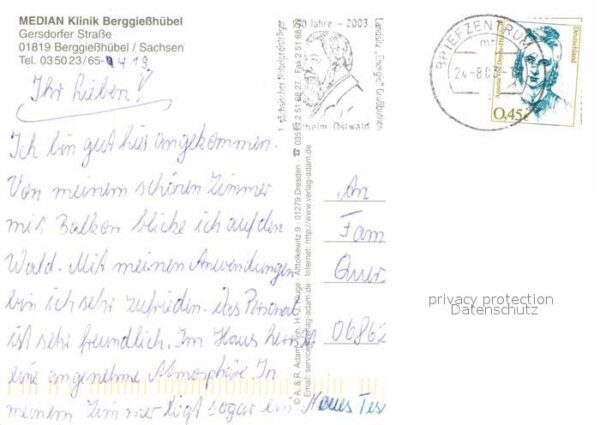 MEDIAN Klinik Berggießhübel
Gersdorfer Straße
01819 Berggießhübel / Sachsen
Tel. 03 50 23 / 65-1419
Ihr Lieben!
Ich bin gut hier angekommen.
Von meinem schönen Zimmer
mit Balkon blicke ich auf den
Wald. Mit meinen Anwendungen
bin ich sehr zufrieden. Das Personal
ist sehr freundlich. Im Haus herrscht
eine angenehme Atmosphäre. In
meinem Zimmer liegt sogar ein Neues Tes
150 Jahre – 2003
helm Ostwald
Landsitz "Energie" Großbothen
© A. & R. Adam
Altolkewitz 9 · 01279 Dresden
Internet: http://www.verlag-adam.de
BRIEFZENTRUM
24.-8.0
Deutschland
Annette von Droste-Hülshoff
0,45€
An
Fam
Quer
06862
privacy protection
Datenschutz